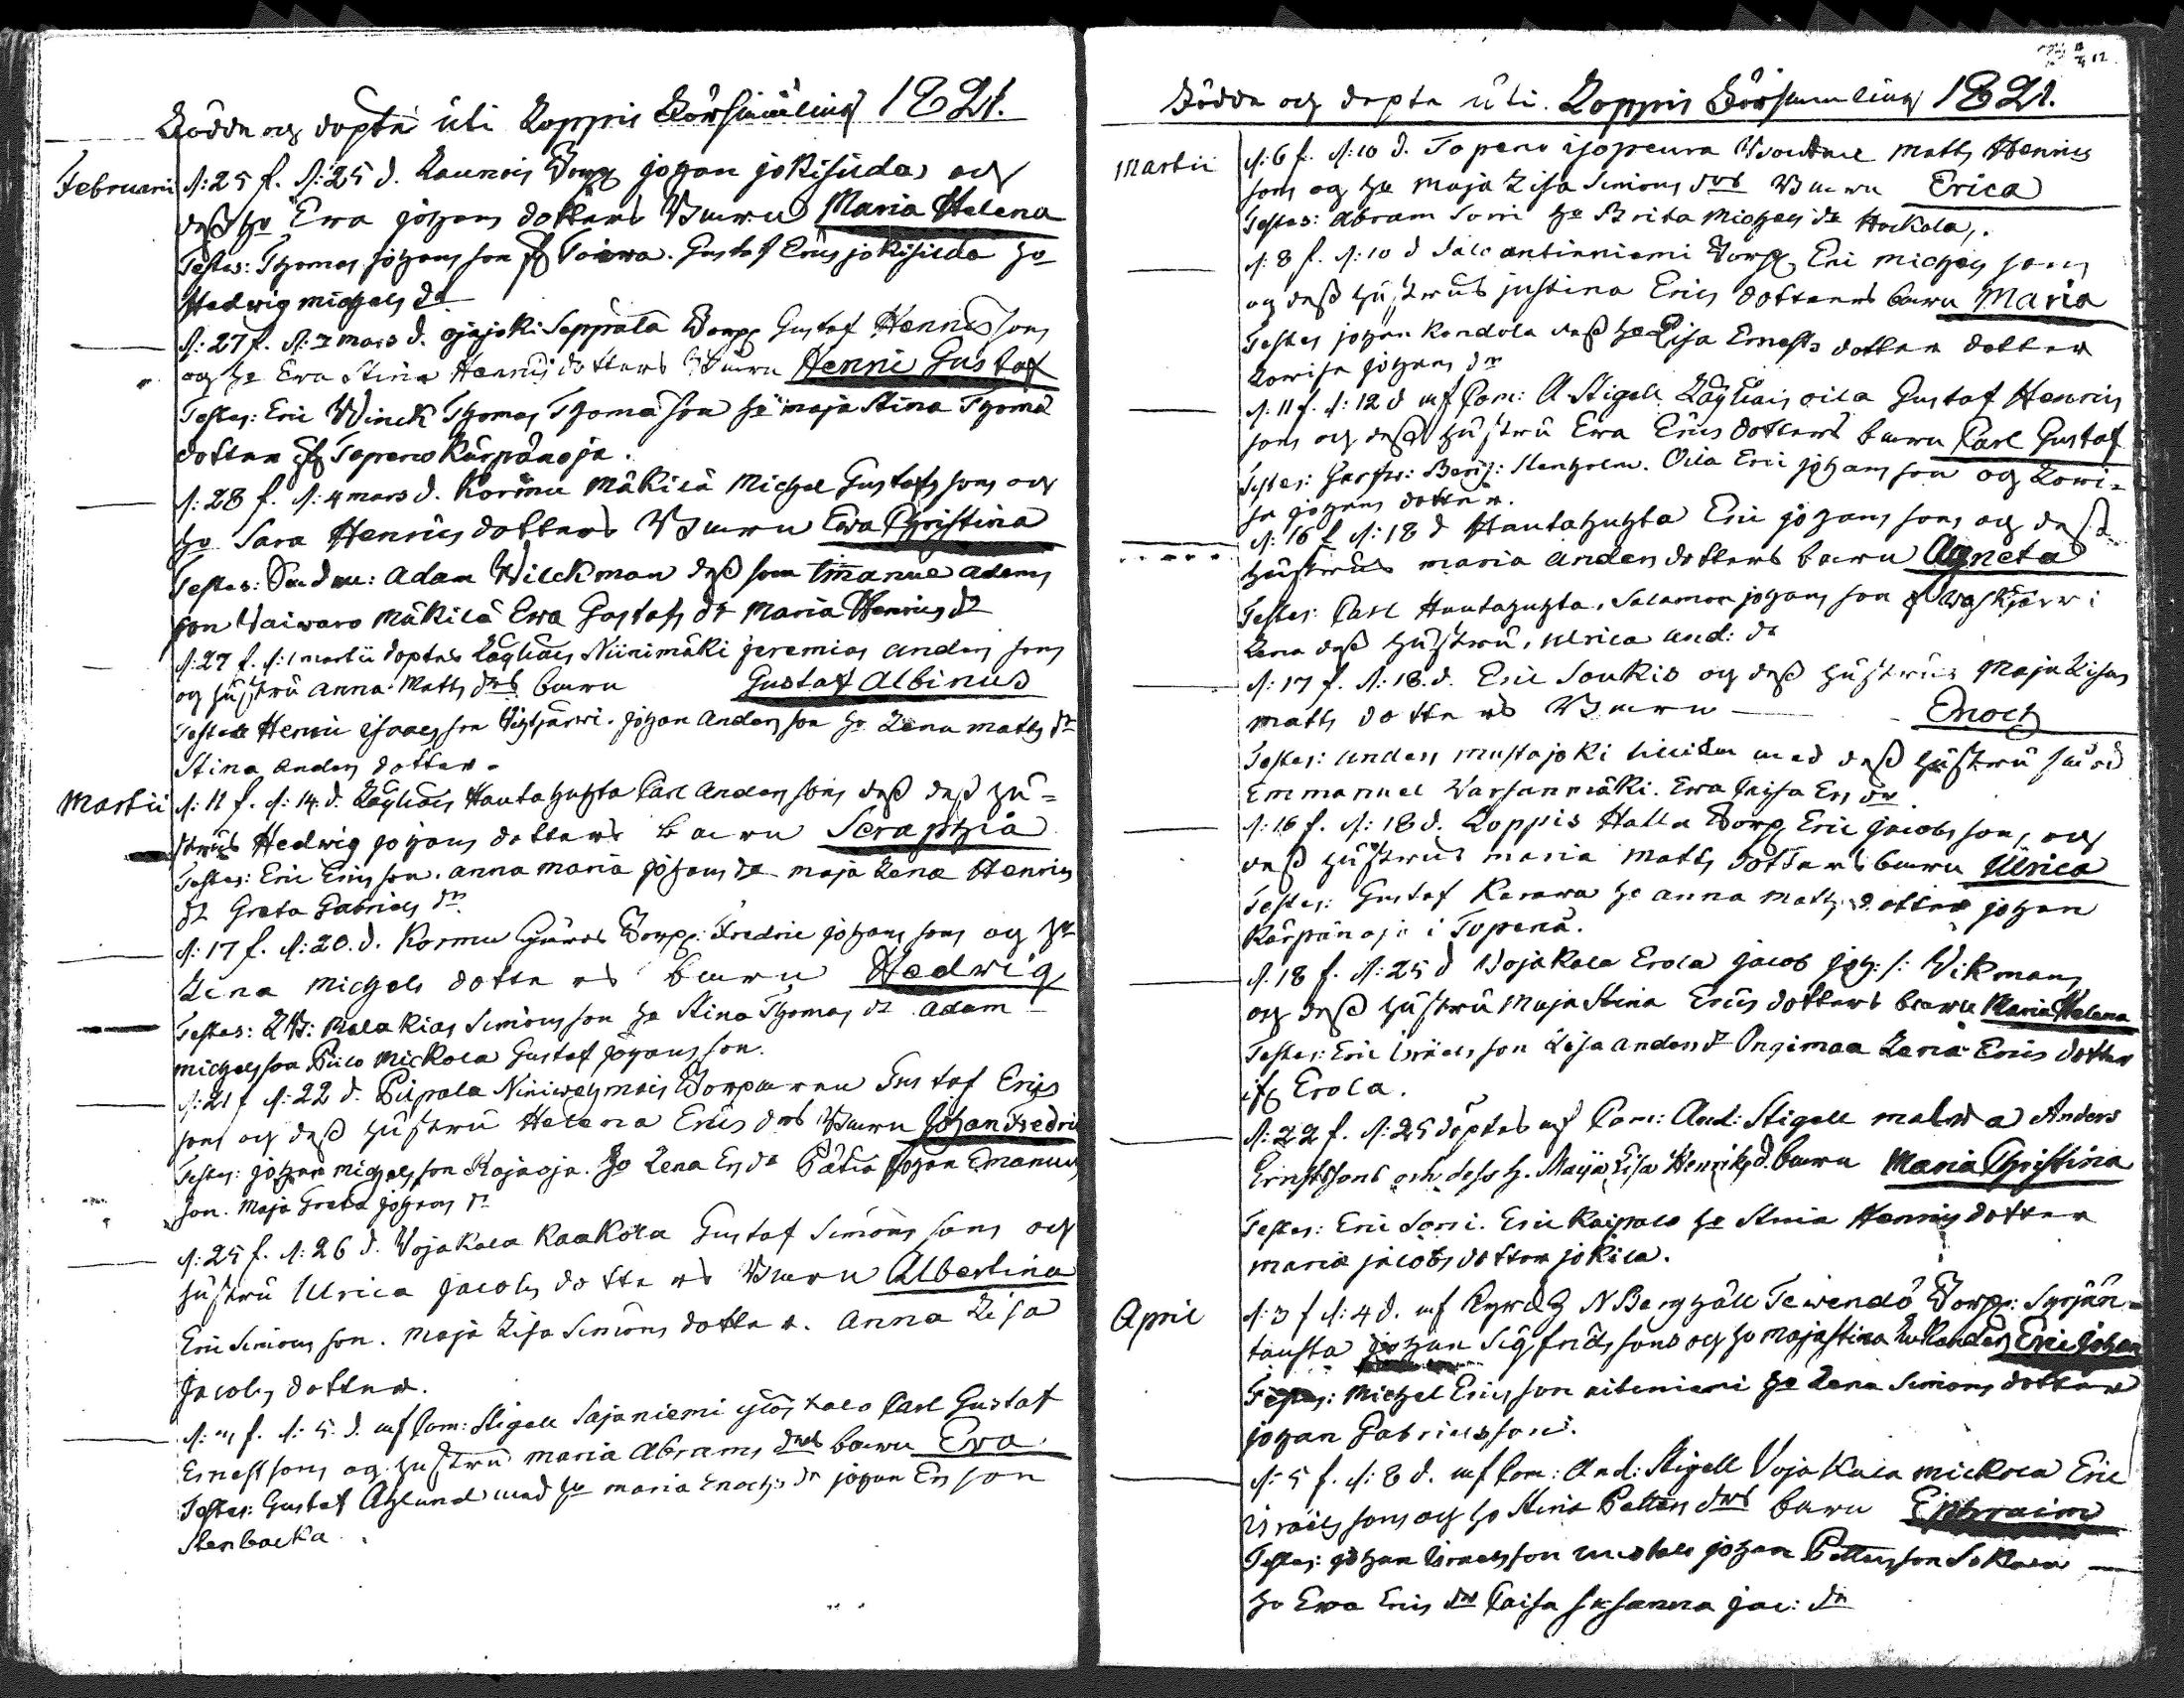 Födde och döpte uti Loppis Församling 1821.
Februarii d: 25 f. d: 25 d. Launois Torp Johan Jokisuida och
dess ho Ewa Johans dotters Barn Maria Helena
Testes: Thomas Johansson Toiwa. Gustaf Erics Jokisuida ho
Hedwig Michels dr
d: 27 f. d: 3 mars d. Ojajoki Seppälä Torp: Gustaf Henrics sons
och ho Ewa Stina Henrics dotters Barn Henric Gustaf
Testes: Eric Winck Thomas Thomasson ho Maja Stina Thomæ
dotter ifr Topeno Kärpänoja.
d: 28 f. d: 4 mars d. Kormu Mäkilä Michel Gustafs sons och
ho Sara Henrics dotters Barn Ewa Christina
Testes: Adam Wilckman dess son Emanuel Adams
son Waiwaro Mäkilä Ewa Gustafs dr Maria Henrics dr
d: 27 f. d: 1 martii döptes Läyliäis Niinimäki Jeremias Anders sons
och hustru Anna Matts drs barn Gustaf Albinus
Testes Henric Isaacsson Johan Andersson ho Lena Matts dr
Stina Anders dotter.
Martii d: 11 f. d: 14. d. Läyliäis Hautahuhta Carl Anders sons dess dess hu=
strus Hedwig Johans dotters barn Seraphia
Testes: Eric Ericsson. Anna Maria Johans dr Maja Lena Henrics
dr Greta Gabriels dr.
d: 17 f. d: 20. d. Kormu Gårds Torp: Fredric Johans sons och ho
Lena Michels dotters barn Hedwig
Testes: Malakias Simonsson ho Stina Thomas dr Adam
Michelsson Piilo Mickola Gustaf Johansson.
d: 21 f d: 22 d. Pilpala Torparen Gustaf Erics
sons och dess hustru Helena Erics drs Barn Johan Fredric
Testes: Johan Michelsson Rajaoja. ho Lena Ers dr Johan Emanuels
son. Maja Greta Johans dr
d: 25 f. d: 26 d. Vojakala Kaakola Gustaf Simons sons och
hustru Ulrica Jacobs dotters Barn Albertina
Eric Simonsson. Maja Lisa Simons dotter. Anna Lisa
Jacobs dotter.
d: f. d: 5. d. af Com: Stigell Sajaniemi Carl Gustaf
Ernest sons och hustru Maria Abrams drs barn Ewa
Testes: Gustaf Ahlund med ho Maria Enochs dr Johan Ersson
Stenbacka.
Födde och döpte uti Loppis Församling 1821.
Martii d: 6 f. d: 10 d. Topeno Matts Henrics
sons och ho Maja Lisa Simons drs Barn Erica
Testes: Abram Sorri ho Brita Michels dr Hockola.
d: 8 f. d: 10 d Torp: Eric Michels sons
och dess hustrus Justina Erics dotters barn Maria
Testes Johan Kondola dess ho Lisa Ernests dotter dotter
Lowisa Johans dr
d: 11 f. d: 12 d af Com: A Stigell Läyliäis Oila Gustaf Henrics
sons och dess hustru Ewa Erics dotters barn Carl Gustaf
Testes: Stenholm. Oila Eric Johansson och Lowi=
sa Johans dotter.
d: 16 f d: 18 d Hautahuhta Eric Johans sons och dess
hustrus Maria Anders dotters barn Agneta
Testes: Carl Hautahuhta, Salamon Johansson af Waskijärwi
Lena dess hustru, Ulrica And: dr
d: 17 f. d: 18. d. Eric Soukis och dess hustrus Maja Lisas
Matts dotters Barn Enoch
Testes: Anders Mustajoki med dess hustru
Emmanuel Warsanmäki. Ewa Caisa Ers dr.
d: 16 f. d: 18 d. Loppis Halla Torp: Eric Jacobs sons, och
dess hustrus Maria Matts dotters barn Ulrica
Testes: Gustaf Karawa ho Anna Matts dotter Johan
Kärpänoja i Topenå.
d. 18 f. d: 25 d Vojakala Erola Jacob Joh: s: Wikmans
och dess hustru Maja Stina Erics dotters barn Maria Helena
Testes: Eric Israelsson Lisa Anders dr Ongimaa Lena Erics dotter
ifr Erola.
d: 22 f. d: 25 döptes af Com: And: Stigell Anders
Ernstsons och dess h. Maija Lisa Henriks d. barn Maria Christina
Testes: Eric Sorri. Eric Kaipalo ho Stina Henrics dotter
Maria Jacobs dotter Jokila.
April d: 3 f d: 4 d. af N Berghäll Tewendö Torp: Syrjän=
tausta Johan Sigfrids sons och ho Maja Stina Eric Johan
Testes: Michel Ericsson ho Lena Simons dotter
Johan Gabrielsson.
d: 5 f. d: 8 d. af Com: And: Stigell Voja Kala Mickola Eric
Israels sons och ho Stina Petters drs barn Ephraim
Testes: Johan Israelsson Johan Pettersson
ho Ewa Erics dr Caisa Susanna Jac: dr